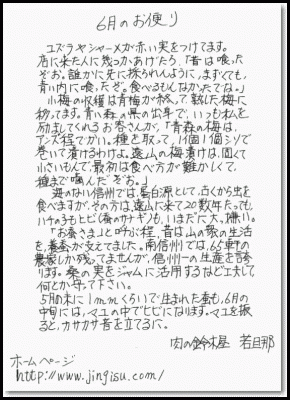 6月のお便り
ユスラやシャーメが赤い実をつけてます。
店に来た人に幾つかあげたら、「昔は喰った
ぞお。誰かに先に採られんように、まずくても、
青い内に喰ったぞ。食べるもんなかったでな。」
小梅の収穫は青梅が終って、熟した梅に
移ってます。青い森の県の出身で、いつも私を
励ましてくれるお客さんが、「青森の梅は、
アンズ程でかい。種を取って、1個1個シソで
巻いて漬けるわけよ。遠山の梅漬けは、固くて
小さいもんで、最初は食べ方が難かしくて、
種まで噛んだぞお。」
海のない信州では、蛋白源として、古くから虫を
食べますが、その方は遠山に来て20数年たっても、
ハチの子もヒビ(蚕のサナギ)も、いまだに大っ嫌い。
「お蚕さま」と呼ぶ程、昔は山の家の生活
を、養蚕が支えてました。南信州では、65軒の
農家しか残ってませんが、信州一の生産を誇
ります。桑の実をジャムに活用するなど工夫して
何とか守って下さい。
5月の末に1mmくらいで生まれた蚕も、6月の
中旬には、マユの中でヒビになります。マユを振
ると、カサカサ音を立てるに。
肉の鈴木屋 若旦那
ホームページ
http://www.jingisu.com/